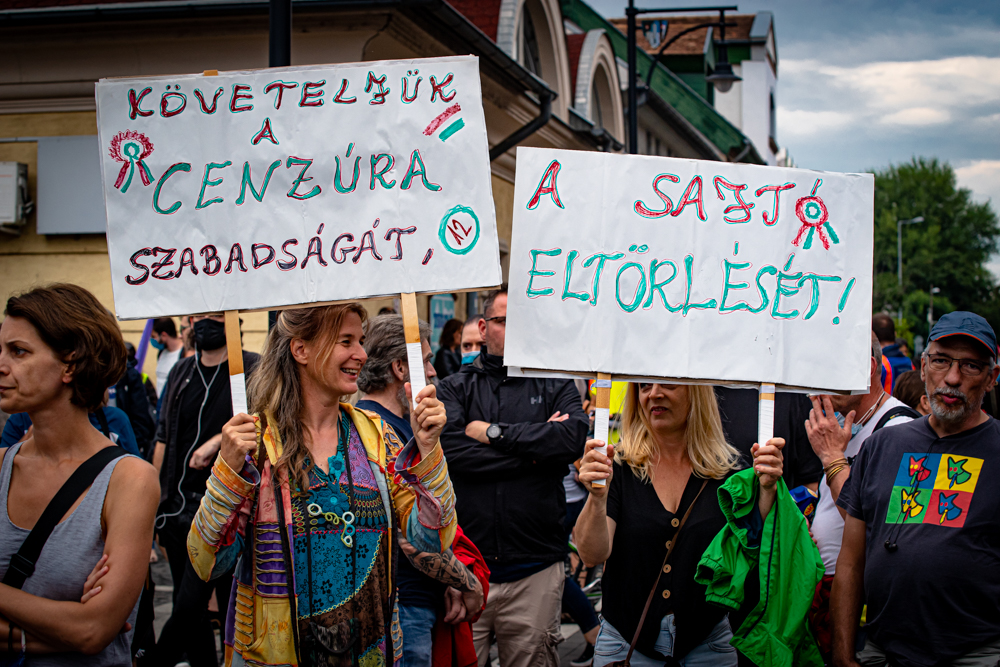 KÖVETELJÜK
A
CENZÚRA
SZABADSÁGÁT,
12
A SAJTÓ
ELTÖRLÉSÉT!